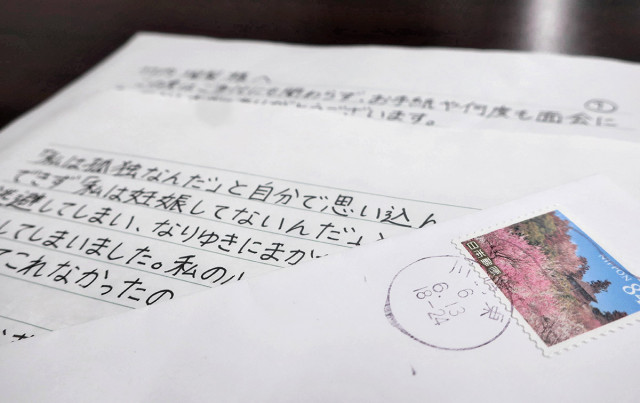 様へ
にも関わらず、お手紙や何度も面会に
ございます。
「私は孤独なんだ」と自分で思い込ん
できず「私は妊娠してないんだ」
逃避してしまい、なりゆきにまか
してしまいました。私の
てこれなかったの
日本郵便
NIPPON
東